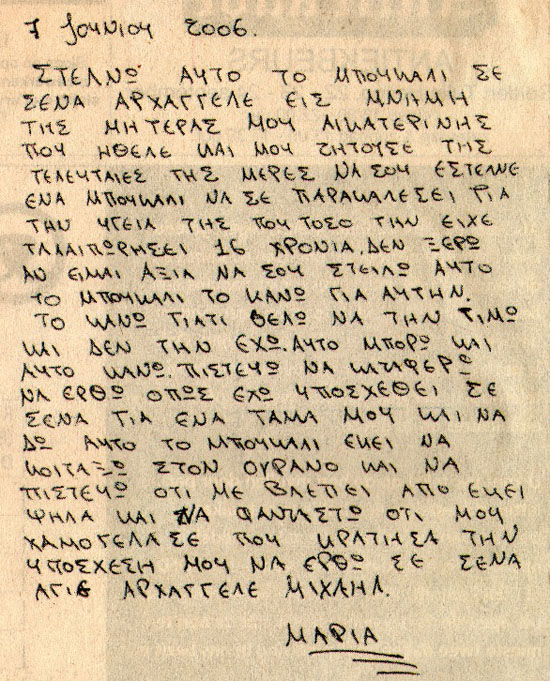 7 ΙΟΥΝΙΟΥ 2006.
ΣΤΕΛΝΩ ΑΥΤΟ ΤΟ ΜΠΟΥΚΑΛΙ ΣΕ
ΣΕΝΑ ΑΡΧΑΓΓΕΛΕ ΕΙΣ ΜΝΗΜΗ
ΤΗΣ ΜΗΤΕΡΑΣ ΜΟΥ ΑΙΚΑΤΕΡΙΝΗΣ
ΠΟΥ ΗΘΕΛΕ ΚΑΙ ΜΟΥ ΖΗΤΟΥΣΕ ΤΗΣ
ΤΕΛΕΥΤΑΙΕΣ ΤΗΣ ΜΕΡΕΣ ΝΑ ΣΟΥ ΕΣΤΕΛΝΕ
ΕΝΑ ΜΠΟΥΚΑΛΙ ΝΑ ΣΕ ΠΑΡΑΚΑΛΕΣΕΙ ΓΙΑ
ΤΗΝ ΥΓΕΙΑ ΤΗΣ ΠΟΥ ΤΟΣΟ ΤΗΝ ΕΙΧΕ
ΤΑΛΑΙΠΩΡΗΣΕΙ 16 ΧΡΟΝΙΑ. ΔΕΝ ΞΕΡΩ
ΑΝ ΕΙΜΑΙ ΑΞΙΑ ΝΑ ΣΟΥ ΣΤΕΙΛΩ ΑΥΤΟ
ΤΟ ΜΠΟΥΚΑΛΙ ΤΟ ΚΑΝΩ ΓΙΑ ΑΥΤΗΝ.
ΤΟ ΚΑΝΩ ΓΙΑΤΙ ΘΕΛΩ ΝΑ ΤΗΝ ΤΙΜΩ
ΚΑΙ ΔΕΝ ΤΗΝ ΕΧΩ. ΑΥΤΟ ΜΠΟΡΩ ΚΑΙ
ΑΥΤΟ ΚΑΝΩ. ΠΙΣΤΕΥΩ ΝΑ ΚΑΤΑΦΕΡΩ
ΝΑ ΕΡΘΩ ΟΠΩΣ ΕΧΩ ΥΠΟΣΧΕΘΕΙ ΣΕ
ΣΕΝΑ ΓΙΑ ΕΝΑ ΤΑΜΑ ΜΟΥ ΚΑΙ ΝΑ
ΔΩ ΑΥΤΟ ΤΟ ΜΠΟΥΚΑΛΙ ΕΚΕΙ ΝΑ
ΚΟΙΤΑΞΩ ΣΤΟΝ ΟΥΡΑΝΟ ΚΑΙ ΝΑ
ΠΙΣΤΕΥΩ ΟΤΙ ΜΕ ΒΛΕΠΕΙ ΑΠΟ ΕΚΕΙ
ΨΗΛΑ ΚΑΙ ΝΑ ΦΑΝΤΑΣΤΩ ΟΤΙ ΜΟΥ
ΧΑΜΟΓΕΛΑΣΕ ΠΟΥ ΚΡΑΤΗΣΑ ΤΗΝ
ΥΠΟΣΧΕΣΗ ΜΟΥ ΝΑ ΕΡΘΩ ΣΕ ΣΕΝΑ
ΑΓΙΕ ΑΡΧΑΓΓΕΛΕ ΜΙΧΑΗΛ.
ΜΑΡΙΑ